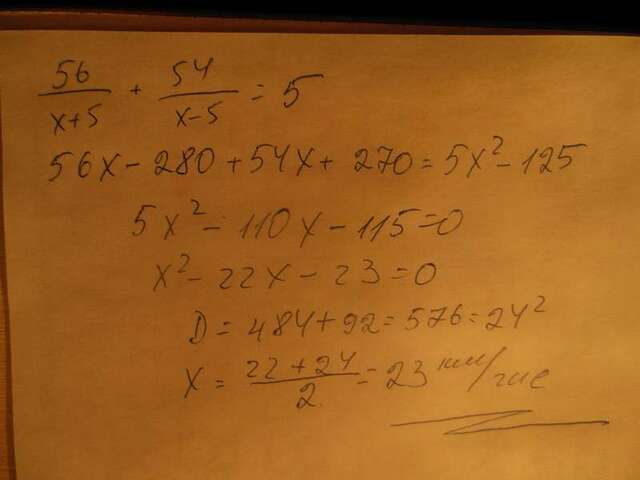 56/(x+5) + 54/(x-5) = 5
56x - 280 + 54x + 270 = 5x² - 125
5x² - 110x - 115 = 0
x² - 22x - 23 = 0
D = 484 + 92 = 576 = 24²
x = (22 + 24)/2 = 23 км/час